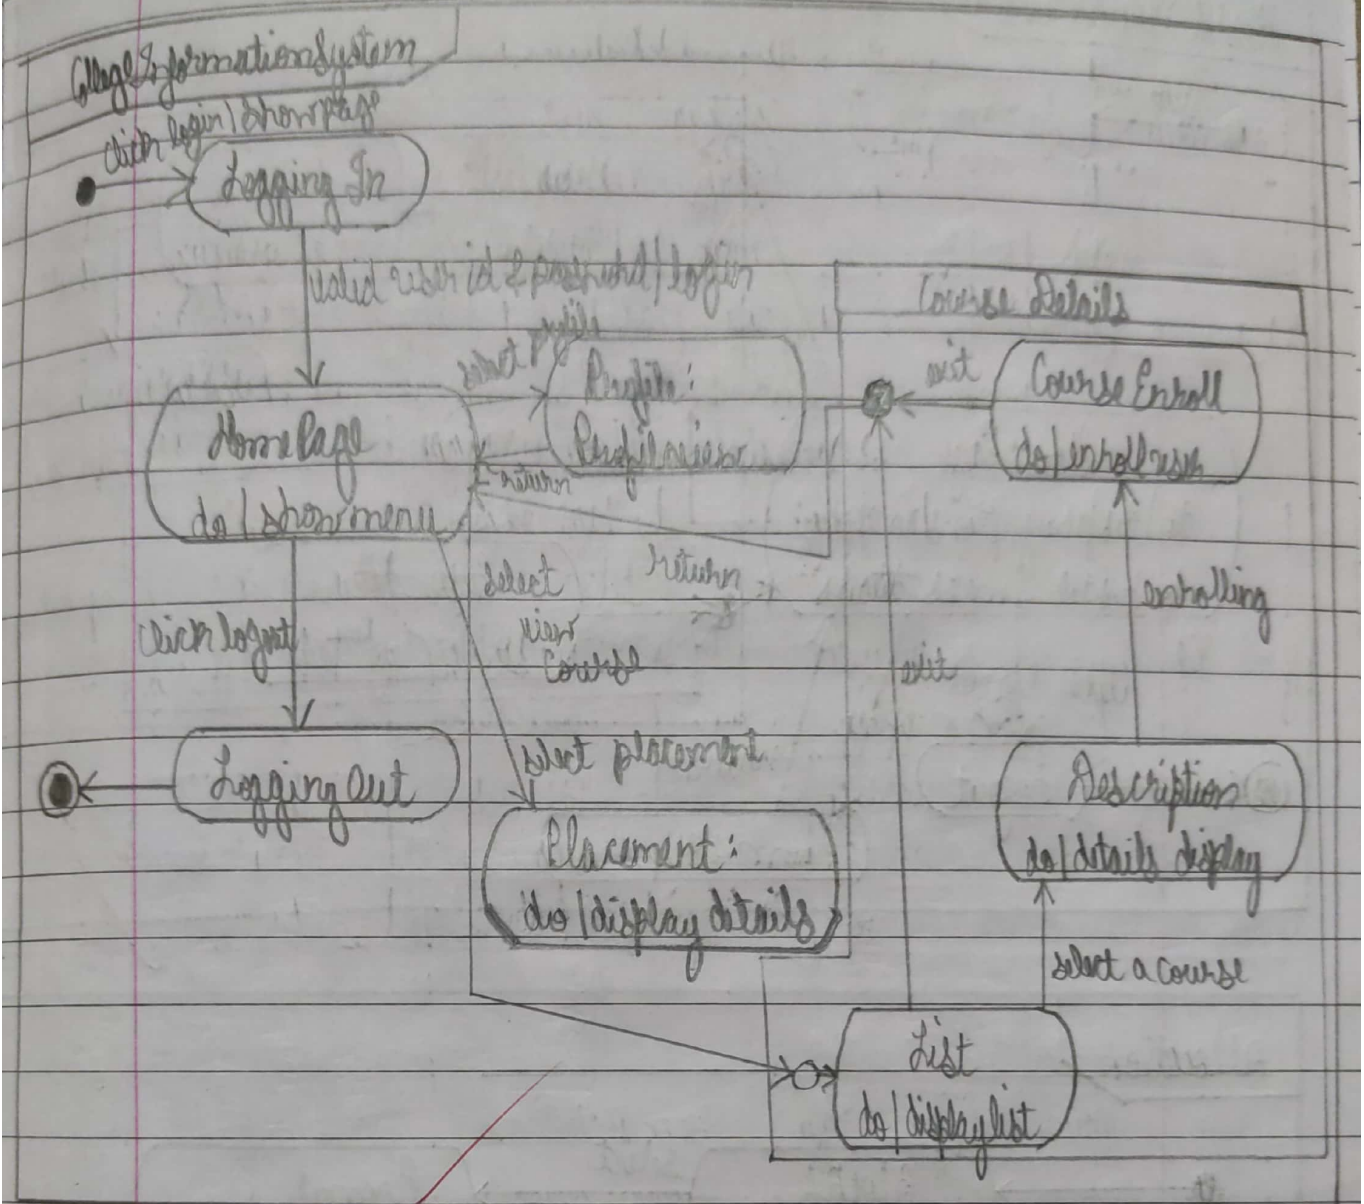 CollegeInformationSystem
click login/showpage
Logging In
valid user id & password/login
Course Details
select profile
Profile:
Profileview
exit
Course Enroll
do/enrolluser
HomePage
do/showmenu
return
select
view
course
return
enrolling
click logout
exit
select placement
Logging Out
Description
do/details display
Placement:
do/display details
select a course
List
do/displaylist